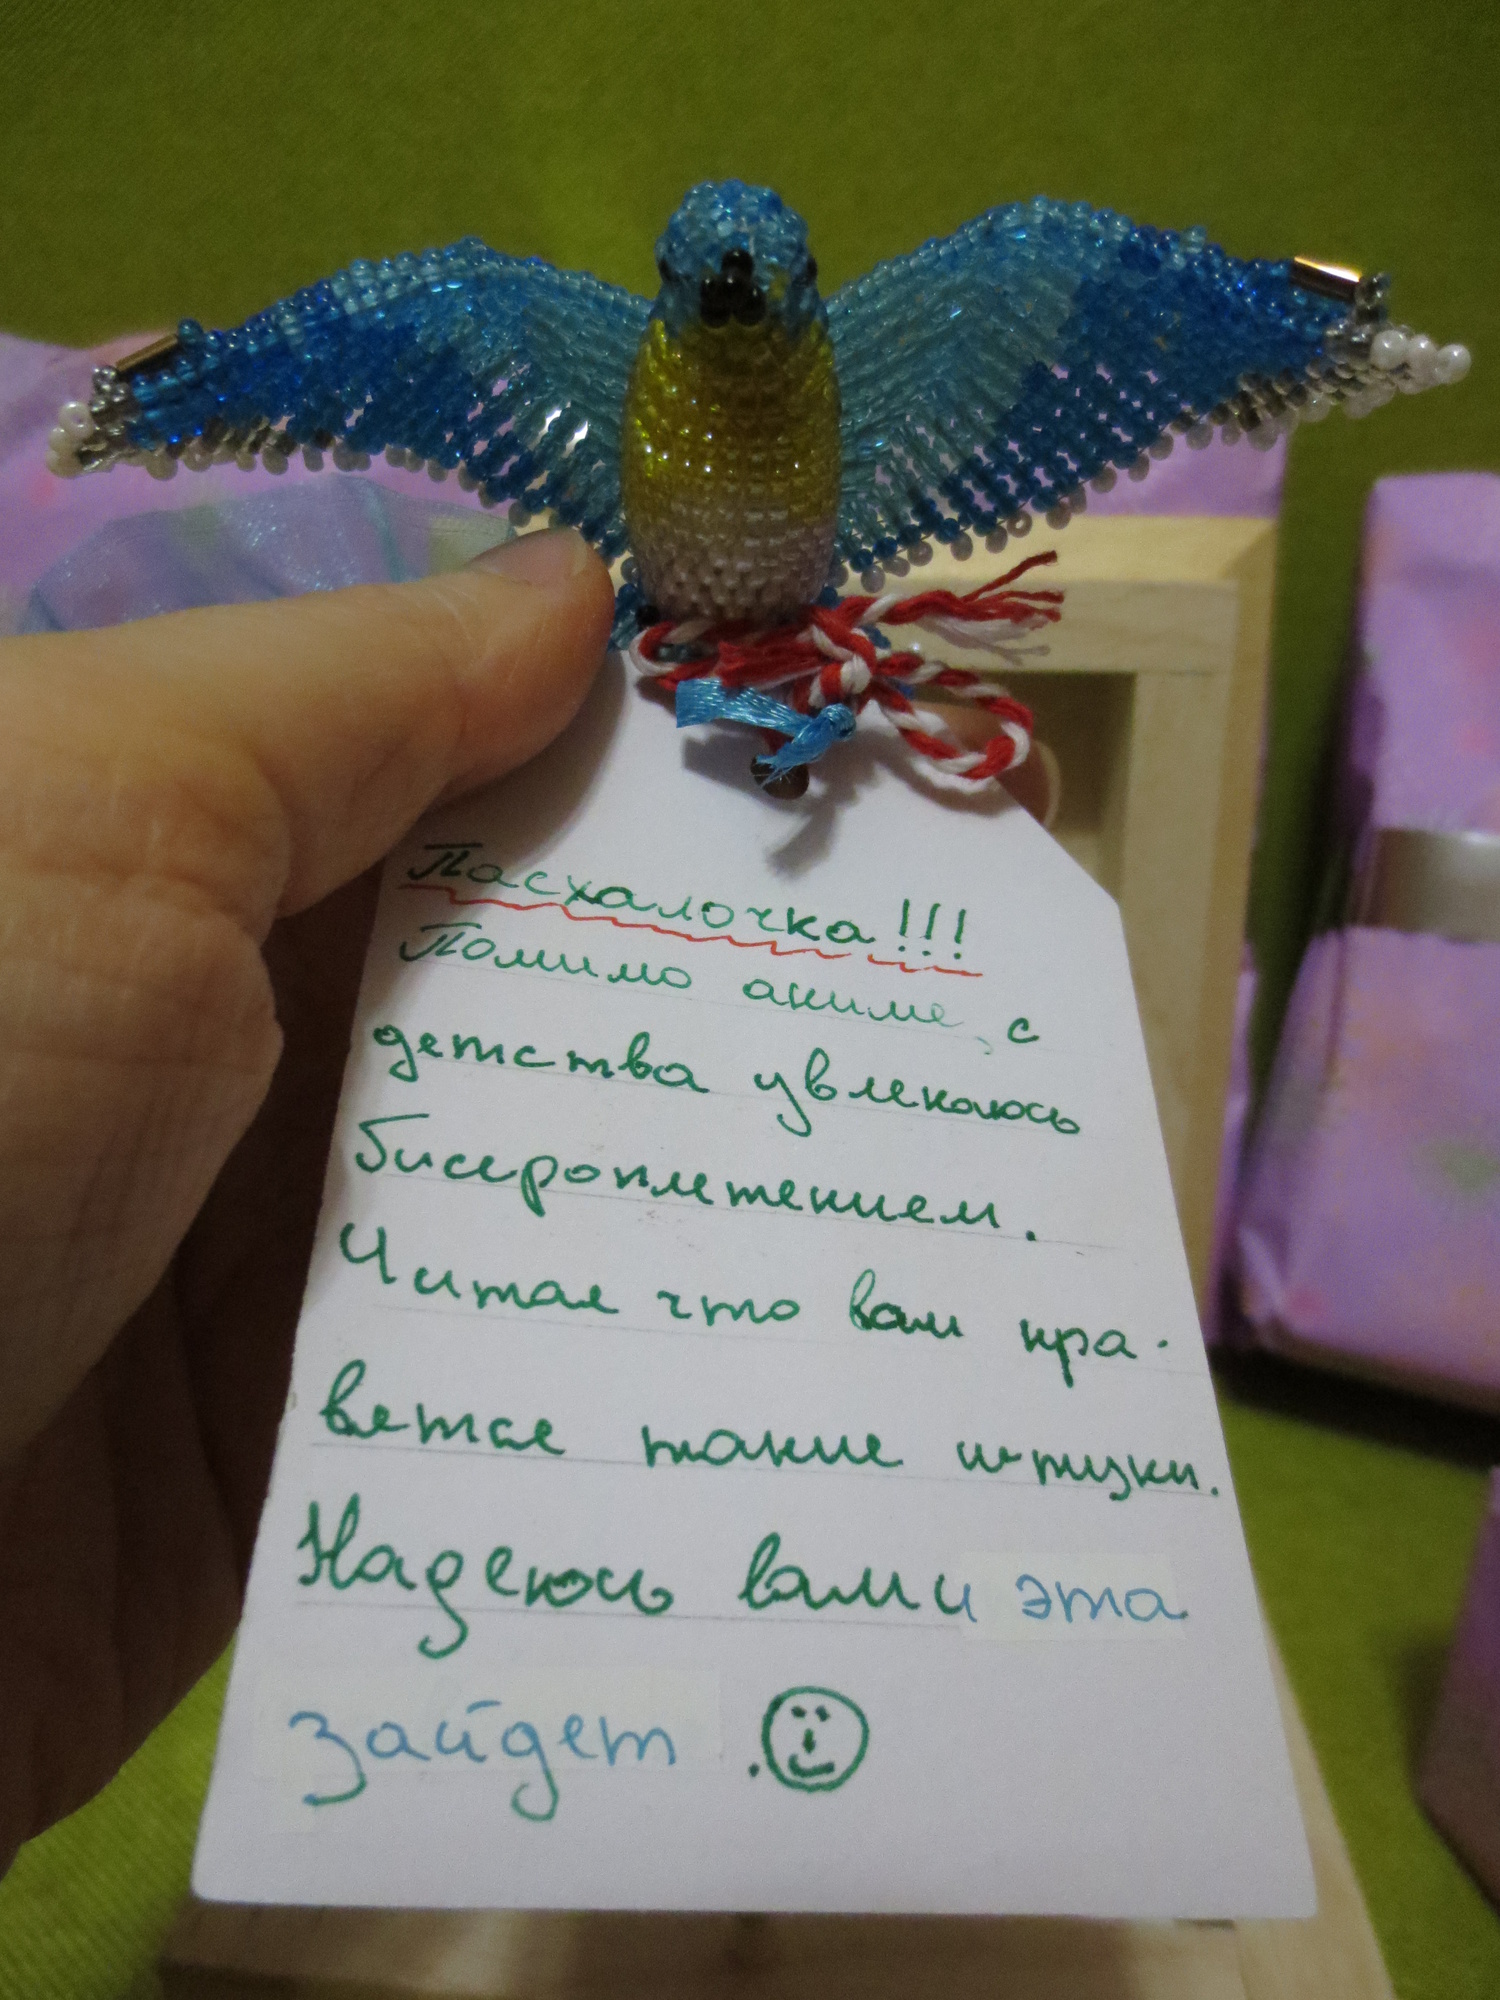 Пасхалочка!!!
Помимо аниме, с
детства увлекаюсь
бисероплетением.
Читая что вам нра-
вятся такие штуки.
Надеюсь вам и эта
зайдет.